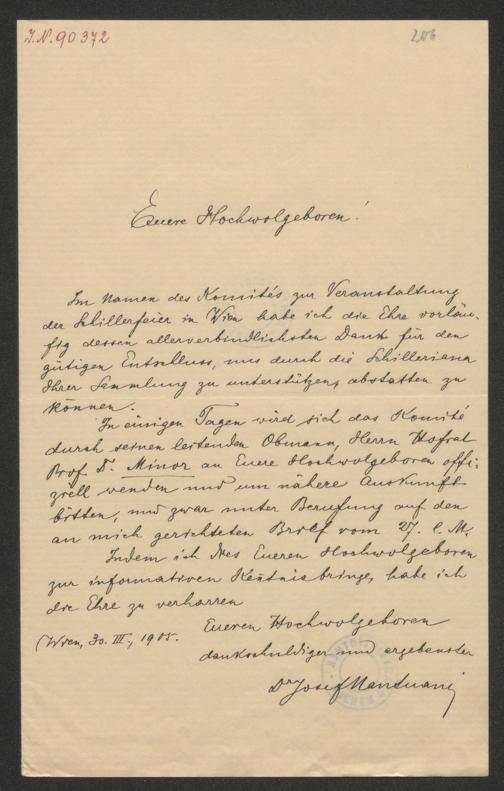 J.N. 90372
206
Euere Hochwolgeboren!
Im Namen des Komités zur Veranstaltung
der Schillerfeier in Wien habe ich die Ehre vorläu-
fig dessen allerverbindlichsten Dank für den
gütigen Entschluss, uns durch die Schilleriana
Ihrer Sammlung zu unterstützen, abstatten zu
können.
In einigen Tagen wird sich das Komité
durch seinen leitenden Obmann, Herrn Hofrat
Prof. Dr. Minor an Euere Hochwolgeboren offi-
ziell wenden und um nähere Auskunft
bitten, und zwar unter Berufung auf den
an mich gerichteten Brief vom 27. l. M.
Indem ich dies Eueren Hochwolgeboren
zur informativen Kentnis bringe, habe ich
die Ehre zu verharren
Eueren Hochwolgeboren
Wien, 30. III., 1905.
dankschuldiger und ergebenster
Dr Josef Mantuani